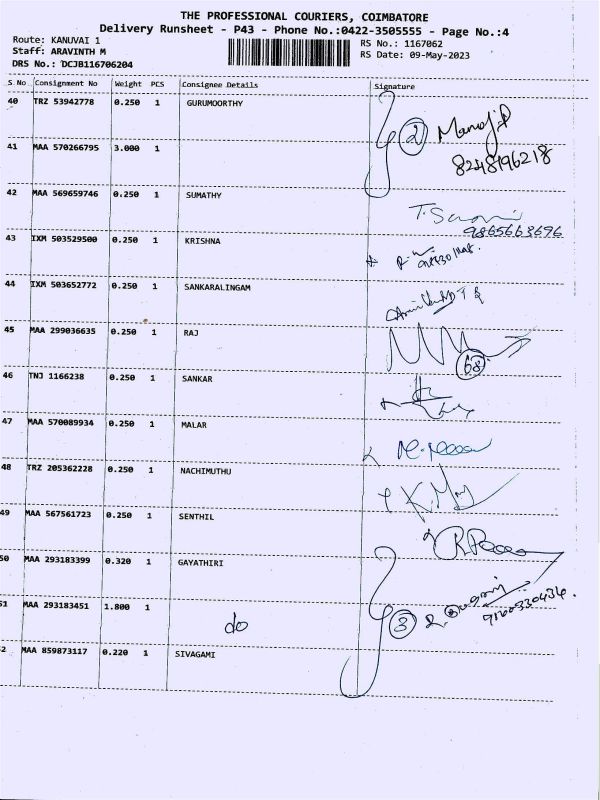 THE PROFESSIONAL COURIERS, COIMBATORE
Delivery Runsheet - P43 - Phone No.:0422-3505555 - Page No.:4
Route: KANUVAI 1 RS No.: 1167062
Staff: ARAVINTH M RS Date: 09-May-2023
DRS No.: DCJB116706204
S No Consignment No Weight PCS Consignee Details Signature
40 TRZ 53942778 0.250 1 GURUMOORTHY
2 Manoj P
8248196218
41 MAA 570266795 3.000 1
42 MAA 569659746 0.250 1 SUMATHY
9865663696
43 IXM 503529500 0.250 1 KRISHNA
44 IXM 503652772 0.250 1 SANKARALINGAM
45 MAA 299036635 0.250 1 RAJ
68
46 TNJ 1166238 0.250 1 SANKAR
47 MAA 570089934 0.250 1 MALAR
48 TRZ 205362228 0.250 1 NACHIMUTHU
49 MAA 567561723 0.250 1 SENTHIL
50 MAA 293183399 0.320 1 GAYATHIRI
51 MAA 293183451 1.800 1 do
3
52 MAA 859873117 0.220 1 SIVAGAMI